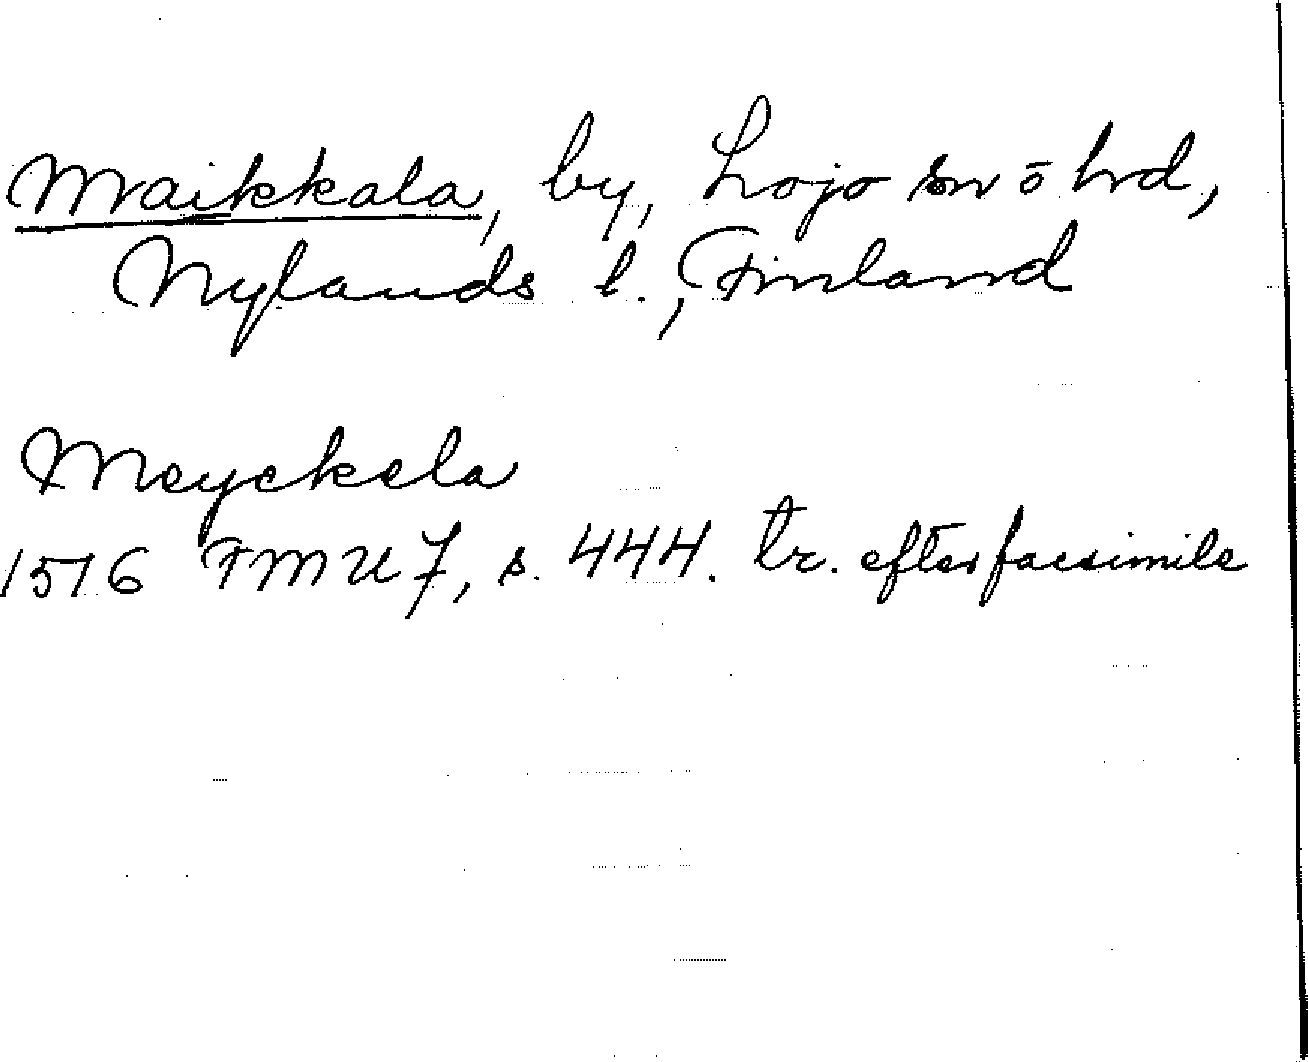 Maikkala, by, Lojo sn ō hrd,
Nylands l., Finland
Meyckela
1516 FMU 7, s. 444. tr. efter facsimile